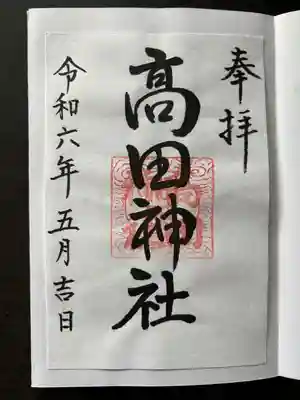 奉拝
髙田神社
令和六年五月吉日